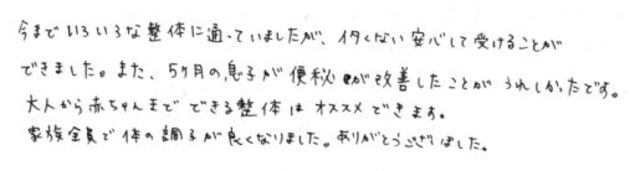 今まで いろいろな整体に通っていましたが、イタくない 安心して 受けることが
できました。また、5ヶ月の息子が 便秘が改善したことが うれしかったです。
大人から赤ちゃんまで できる整体は オススメできます。
家族全員で 体の調子が良くなりました。ありがとうございました。